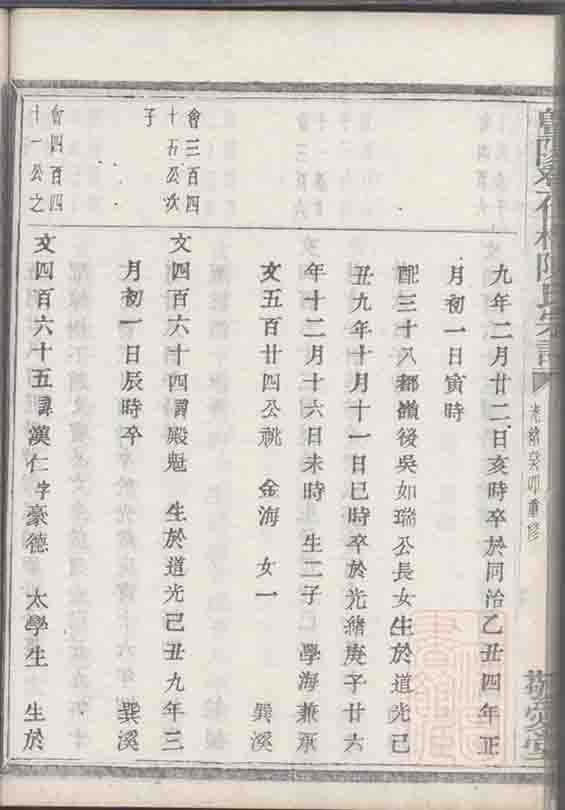 光緒癸卯重修
九年二月廿二日亥時卒於同治乙丑四年正
月初一日寅時
配三十八都嶺後吳如瑞公長女生於道光己
丑九年十月十一日巳時卒於光緒庚子廿六
年十二月十六日未時 生二子 學海兼承
文五百廿四公祧 金海 女一 巽溪
會三百四
十五公次
子
文四百六十四諱殿魁 生於道光己丑九年三
月初一日辰時卒 巽溪
會四百四
十一公之
文四百六十五諱漢仁字豪德 太學生 生於